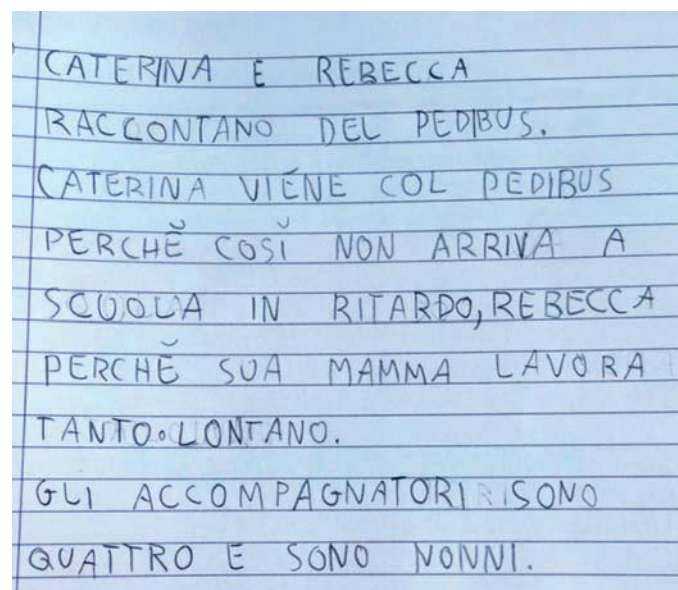 CATERINA E REBECCA
RACCONTANO DEL PEDIBUS.
CATERINA VIENE COL PEDIBUS
PERCHĔ COSĬ NON ARRIVA A
SCUOLA IN RITARDO, REBECCA
PERCHĔ SUA MAMMA LAVORA
TANTO LONTANO.
GLI ACCOMPAGNATORI SONO
QUATTRO E SONO NONNI.